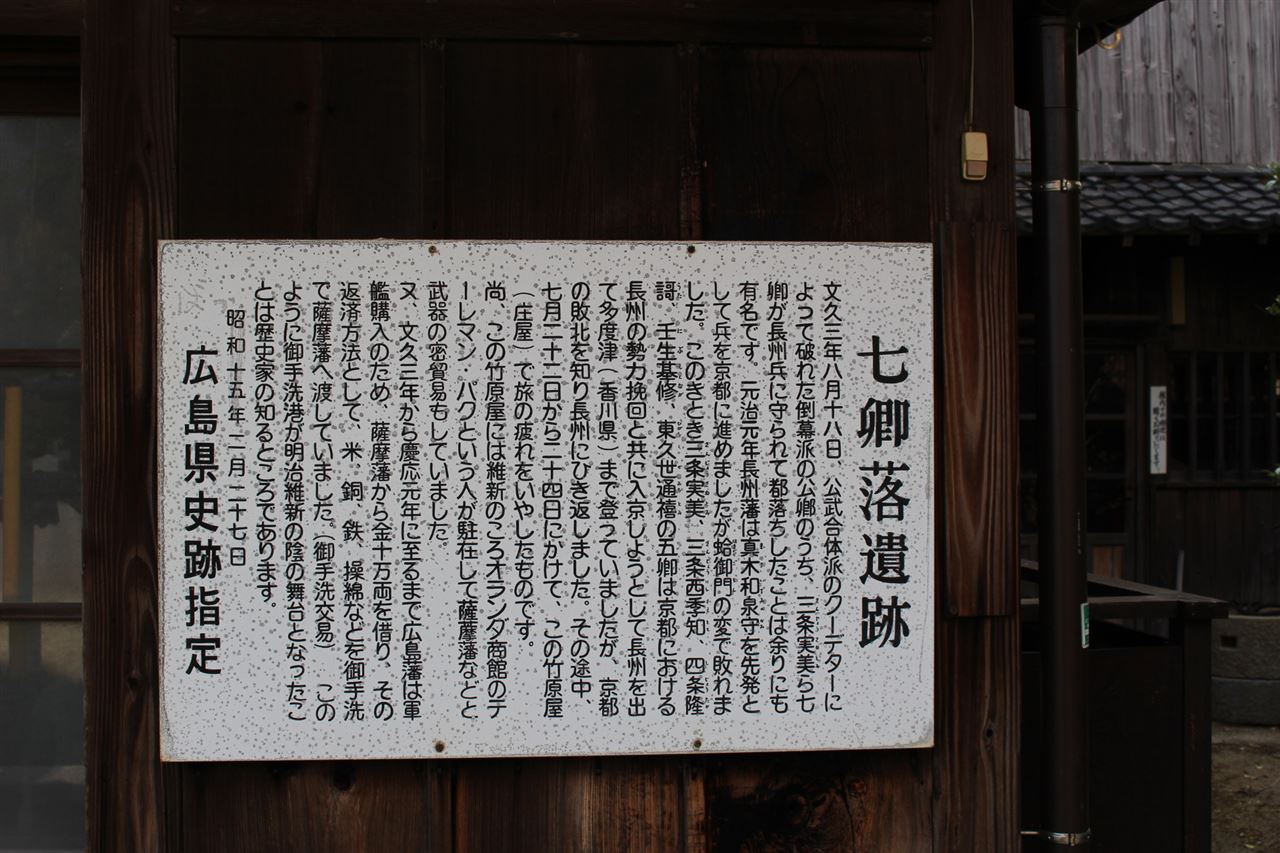 七卿落遺跡
文久三年八月十八日、公武合体派のクーデターに
よって破れた倒幕派の公卿のうち、三条実美ら七
卿が長州兵に守られて都落ちしたことは余りにも
有名です。元治元年長州藩は真木和泉守を先発と
して兵を京都に進めましたが蛤御門の変で敗れま
した。このきとき三条実美、三条西季知、四条隆
謌、壬生基修、東久世通禧の五卿は京都における
長州の勢力挽回と共に入京しようとして長州を出
て多度津（香川県）まで登っていましたが、京都
の敗北を知り長州にひき返しました。その途中、
七月二十二日から二十四日にかけて、この竹原屋
（庄屋）で旅の疲れをいやしたものです。
尚、この竹原屋には維新のころオランダ商館のテ
ーレマン・バクという人が駐在して薩摩藩などと
武器の密貿易もしていました。
又、文久三年から慶応元年に至るまで広島藩は軍
艦購入のため、薩摩藩から金十万両を借り、その
返済方法として、米、銅、鉄、操綿などを御手洗
で薩摩藩へ渡していました。（御手洗交易）　この
ように御手洗港が明治維新の陰の舞台となったこ
とは歴史家の知るところであります。
昭和十五年二月二十七日
広島県史跡指定